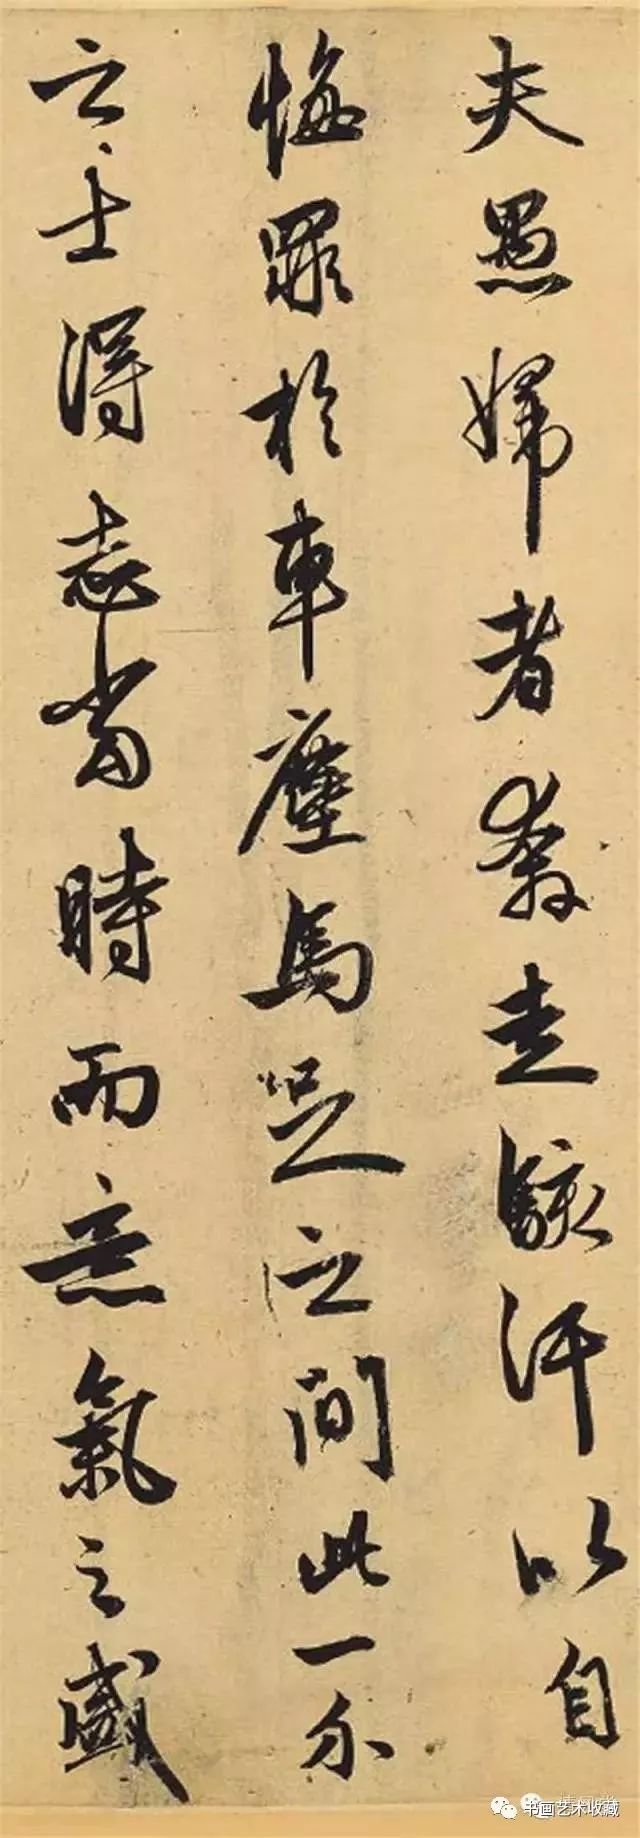 夫愚婦者奔走駭汗以自
悔罪於車塵馬足之間此一介
之士得志當時而意氣之盛
书画艺术收藏